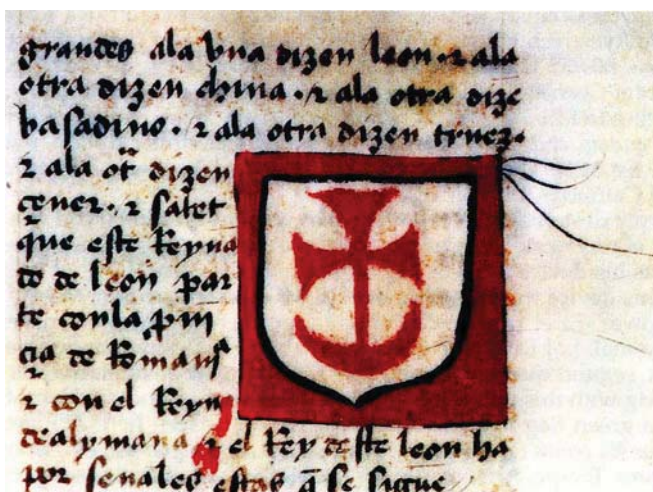 grandes ala vna dizen leon · ⁊ ala
otra dizen china · ⁊ ala otra dize
basadino · ⁊ ala otra dizen truez ·
⁊ ala ot̃ dizen
cener · ⁊ sabet
q̃ este Reyna
do de leon par
te con la
de Romans
⁊ con el Reyn
de alymana ⁊ el Rey deste leon ha
por senales estas q̃ se sigue